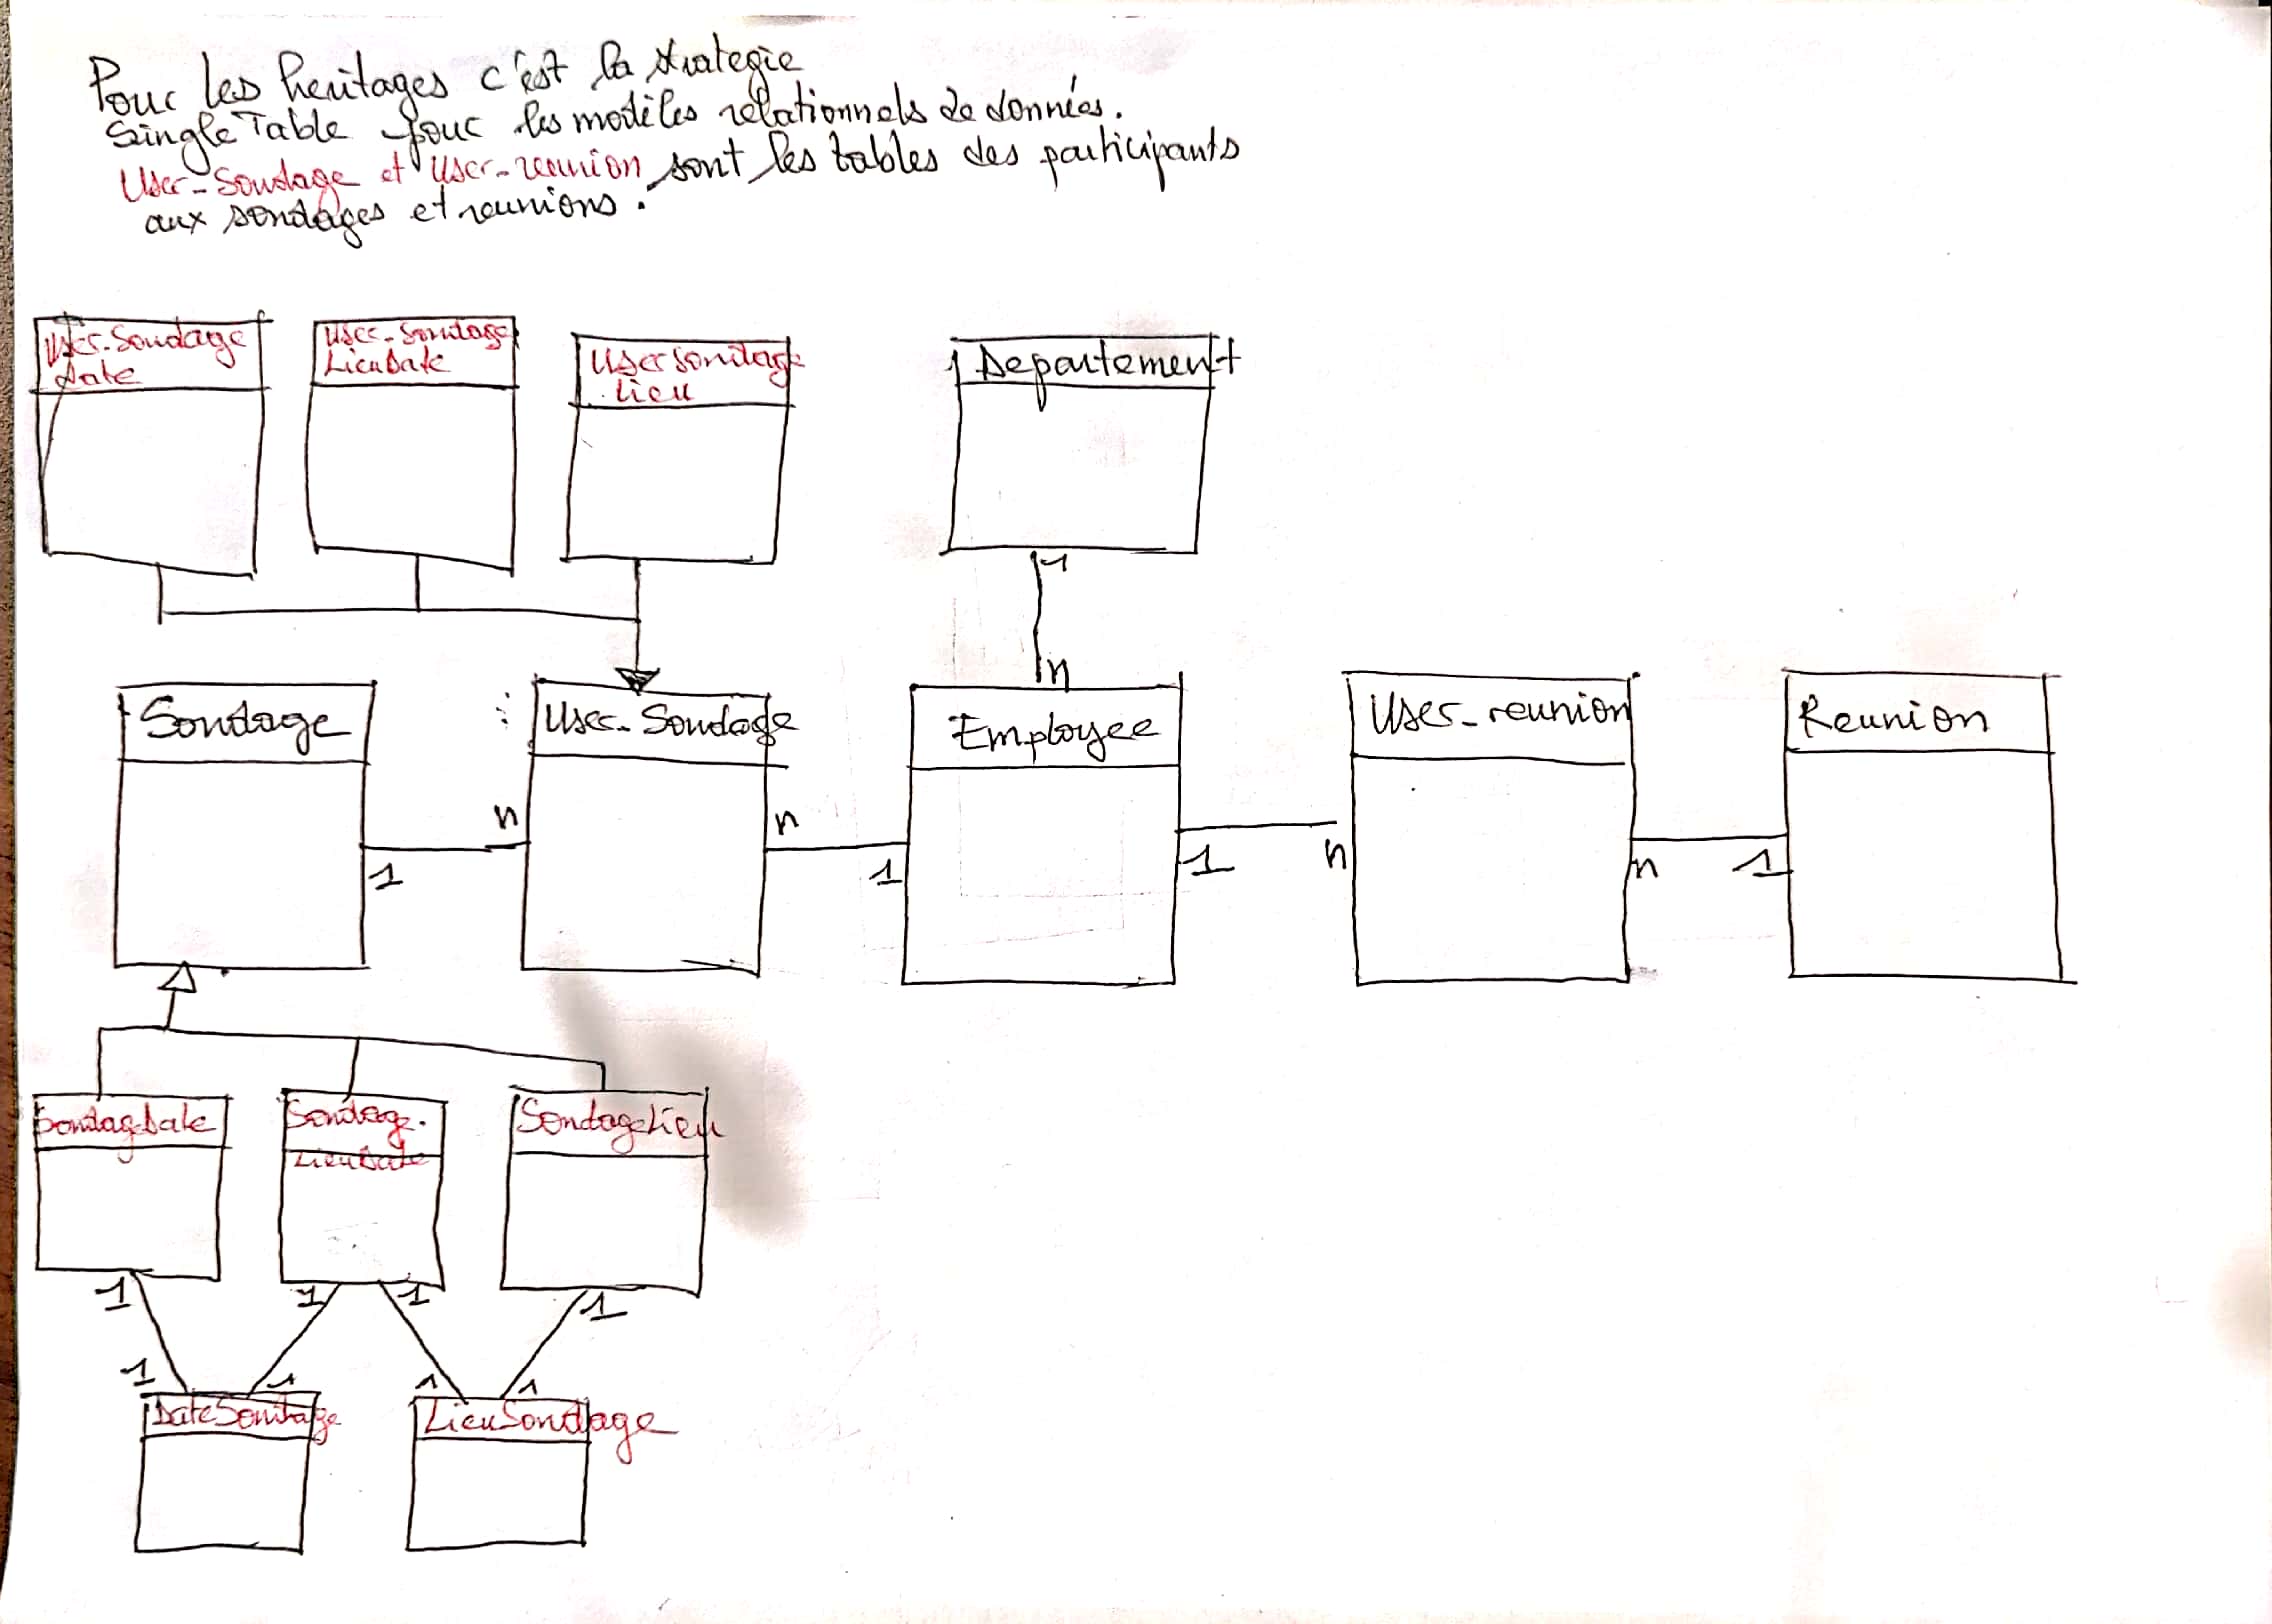 Pour les heritages c'est la strategie
Single Table pour les modèles relationnels de données.
User-Sondage et User-reunion sont les tables des participants
aux sondages et reunions.
User-Sondage
date
User-Sondage
LieuDate
UserSondage
lieu
Departement
1
n
Sondage
User-Sondage
Employee
User-reunion
Reunion
n
n
1
1
1
n
n
1
SondagDate
Sondag.
LieuDate
SondageLieu
1
1
1
1
1
1
1
1
DateSondage
LieuSondage